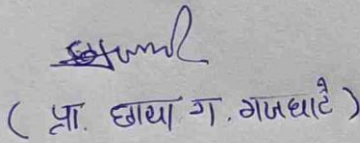 ( प्रा. छाया ग. गजघाटे )